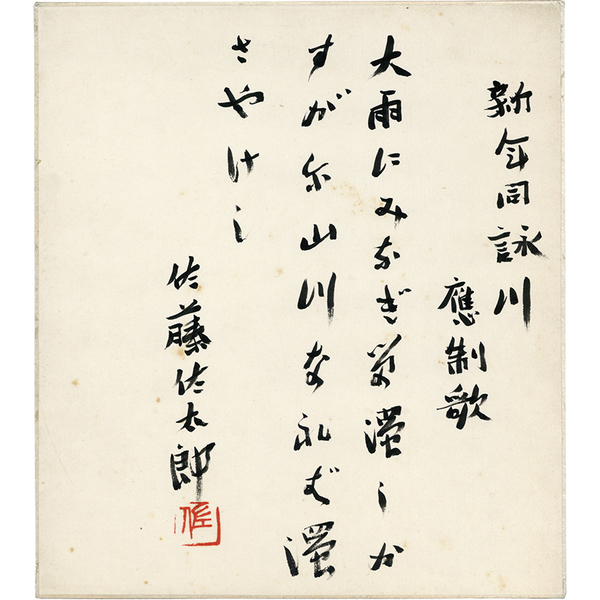 新年同詠川
應制歌
大雨にみなぎる濁しか
すが尓山川なれば濁
さやけし
佐藤佐太郎